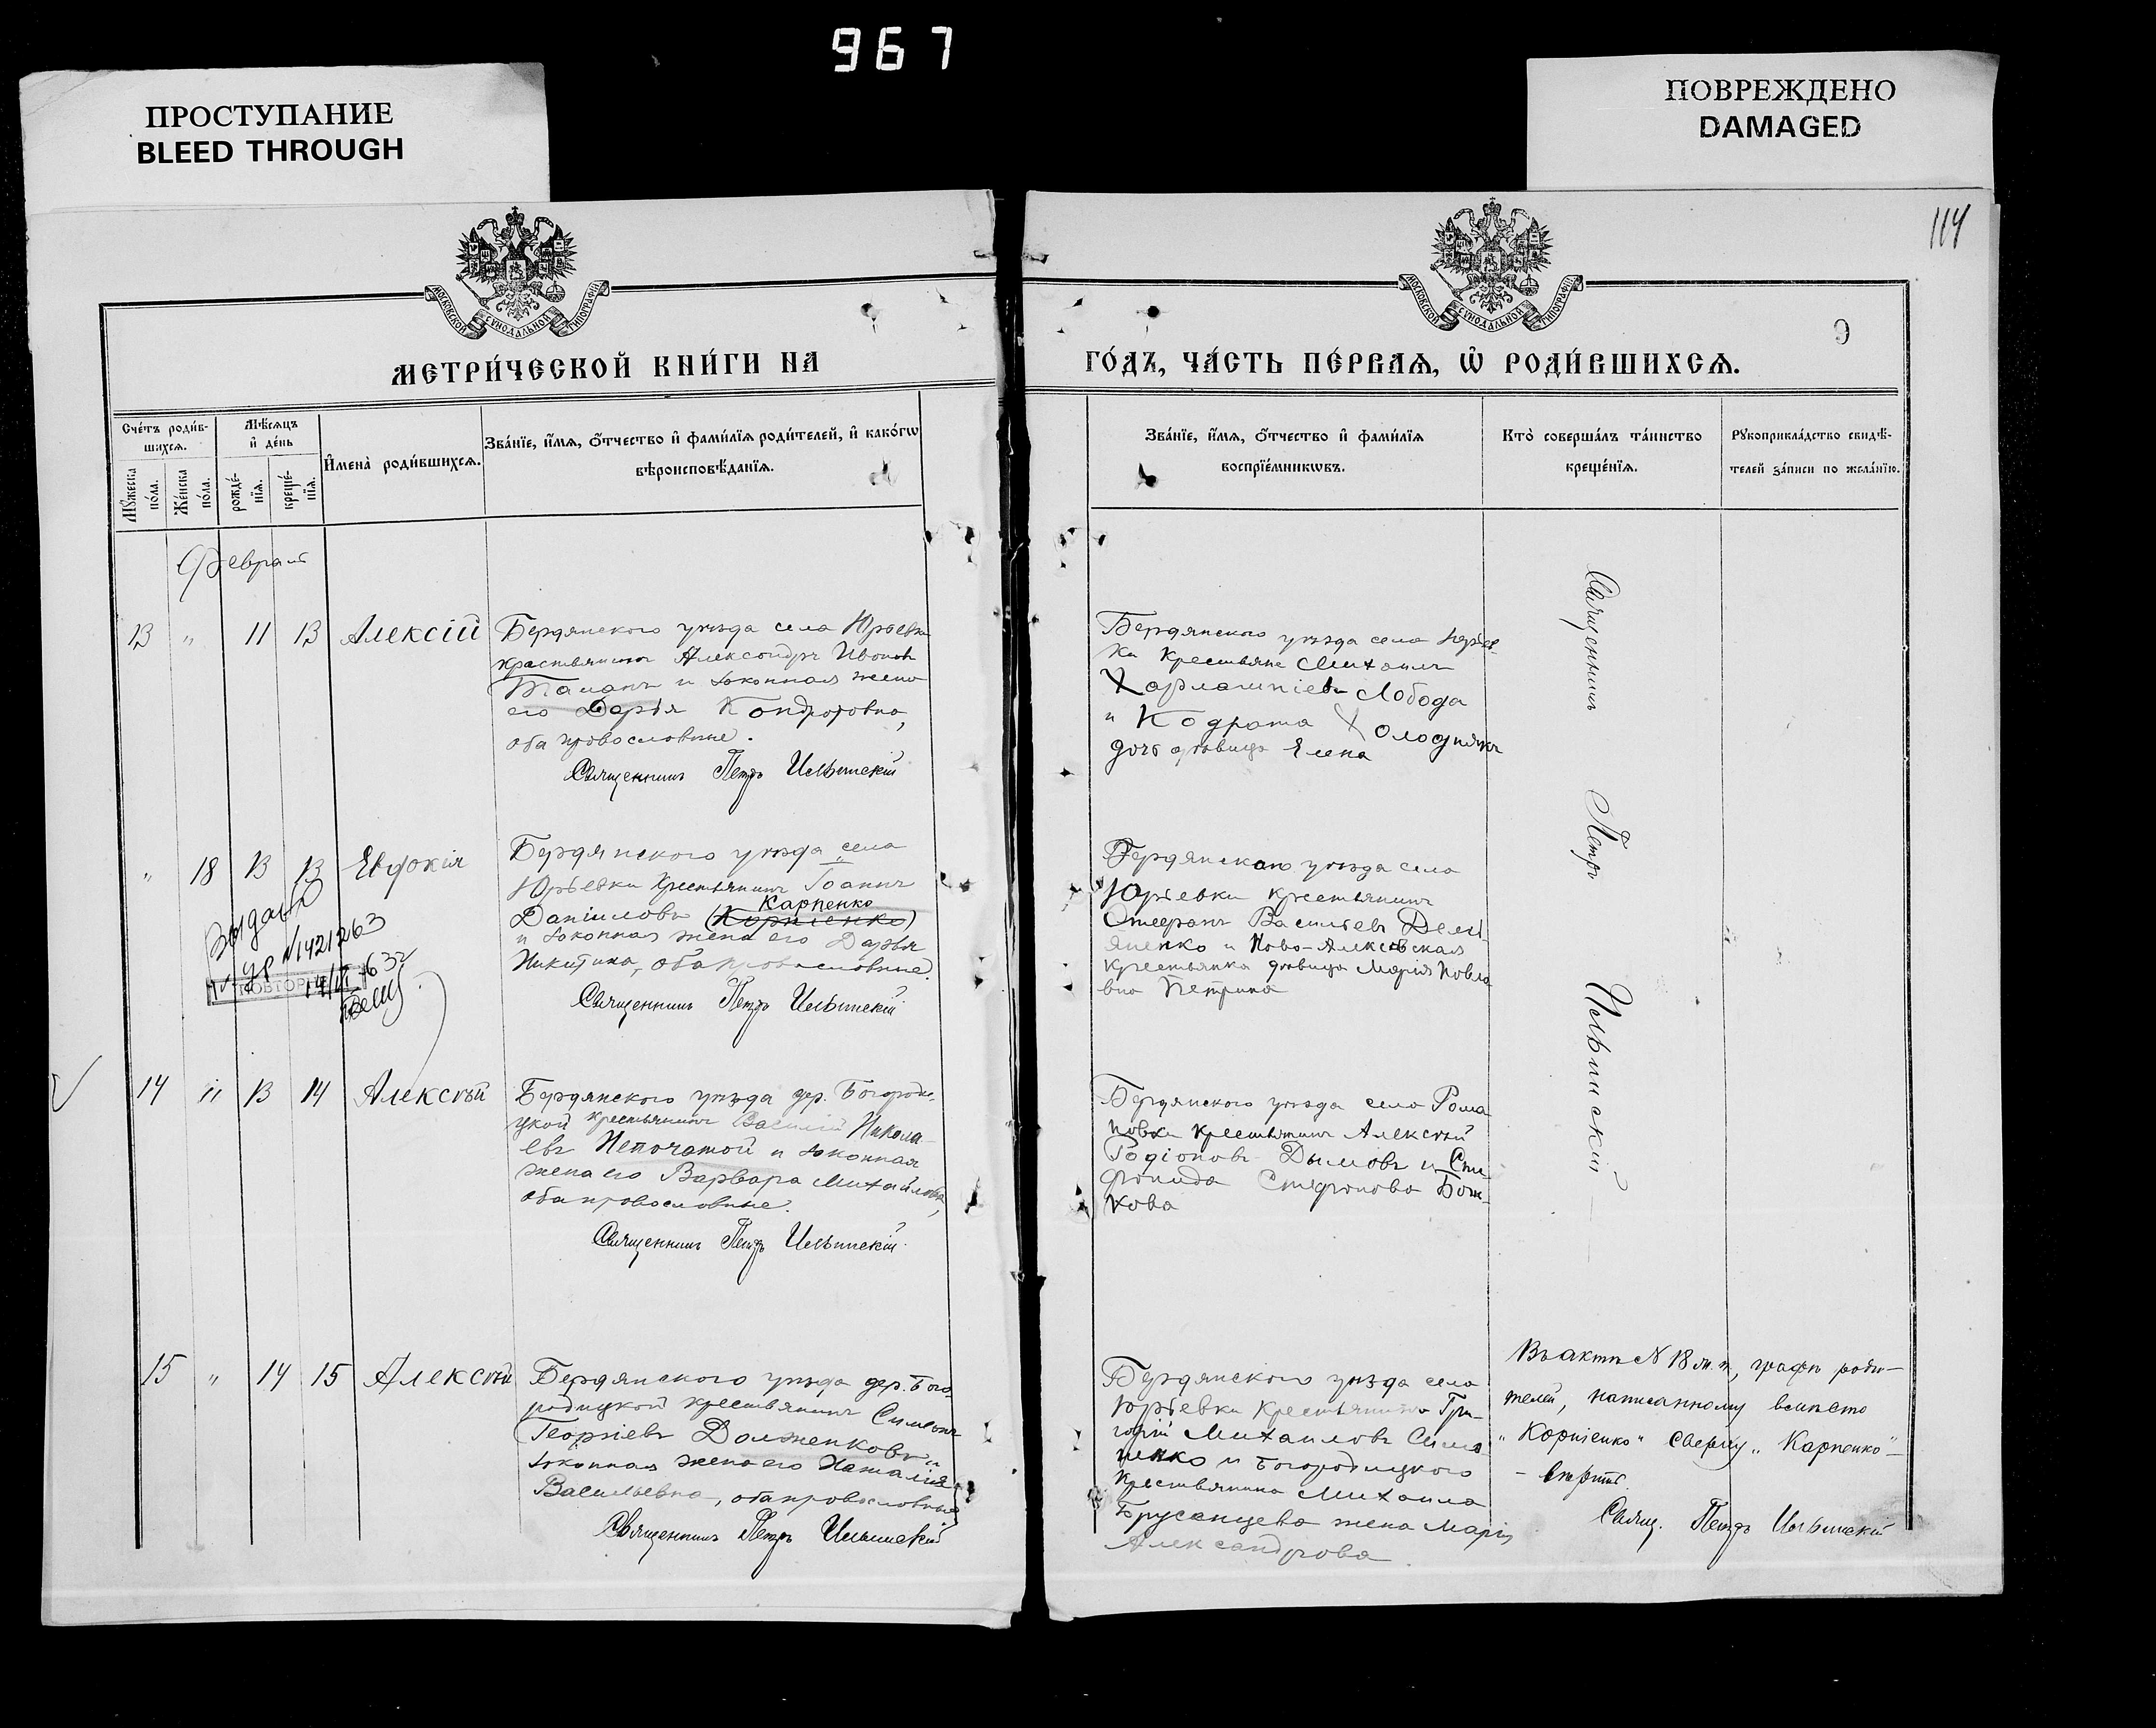 967
ПРОСТУПАНИЕ
BLEED THROUGH
ПОВРЕЖДЕНО
DAMAGED
114
МОСКОВСКОЙ СѴНОДАЛЬНОЙ ТИПОГРАФІИ
МОСКОВСКОЙ СѴНОДАЛЬНОЙ ТИПОГРАФІИ
9
МЕТРИ́ЧЕСКОЙ КНИ́ГИ НА
ГО́ДЪ, ЧА́СТЬ ПЕ́РВАѦ, Ѽ РОДИ́ВШИХСѦ.
Сче́тъ роди́в-
шихсѧ.
Мѣ́сѧцъ
и҆ де́нь
Мꙋ́жеска
по́ла.
Же́нска
по́ла.
рожде́-
нїѧ.
креще́-
нїѧ.
И҆мена̀ роди́вшихсѧ.
Зва́нїе, и҆́мѧ, ѻ҆́тчество и҆ фами́лїѧ роди́телей, и҆ како́гѡ
вѣроисповѣ́данїѧ.
Зва́нїе, и҆́мѧ, ѻ҆́тчество и҆ фами́лїѧ
воспрїе́мникѡвъ.
Кто̀ соверша́лъ та́инство
креще́нїѧ.
Рꙋкоприкла́дство свидѣ́-
телей за́писи по жела́нїю.
Февраль
13 " 11 13 Алексій
Бердянскаго уѣзда села Юрьевки
крестьянинъ Александръ Ивановъ
Таманъ и законная жена
его Дарія Кондратовна,
оба православные.
Священникъ Петръ Ильинскій
Бердянскаго уѣзда села Юрьев-
ки крестьяне Михаилъ
Харлампіевъ Лобода
и Кодрата Холодняка
дочь дѣвица Елена
" 18 13 13 Евдокія
Бердянскаго уѣзда села
Юрьевки крестьянинъ Іоаннъ
Карпенко
Даніиловъ (Корніенко)
и законная жена его Дарья
Никитина, оба православные.
Священникъ Петръ Ильинскій
Бердянскаго уѣзда села
Юрьевки крестьянинъ
Стефанъ Васильевъ Демь-
яненко и Ново-Алексѣвская
крестьянка дѣвица Марія Павло
вна Петрина
Выдано
№ 1421263
ПОВТОРНО
14 " 13 14 Алексѣй
Бердянскаго уѣзда дер. Богороди-
цкой крестьянинъ Василій Никола-
евъ Непочатой и законная
жена его Варвара Михайлова,
оба православные.
Священникъ Петръ Ильинскій
Бердянскаго уѣзда села Рома
новки крестьянинъ Алексѣй
Родіоновъ Дымовъ и Сте-
фанида Стефанова Бож-
кова
15 " 14 15 Алексѣй
Бердянскаго уѣзда дер. Бого
родицкой крестьянинъ Симеонъ
Георгіевъ Долженковъ и
законная жена его Наталія
Васильевна, оба православные
Священникъ Петръ Ильинскій
Бердянскаго уѣзда села
Юрьевки крестьянинъ Гри-
горій Михаиловъ Сима
ненко и Богородицкаго
крестьянина Михаила
Брусенцева жена Марія
Александрова
Священникъ Петръ Ильинскій
Въ актѣ № 18 ж. п, графѣ роди-
телей, написанному вмѣсто
"Корніенко" сверху "Карпенко"-
- вѣрить.
Свящ. Петръ Ильинскій